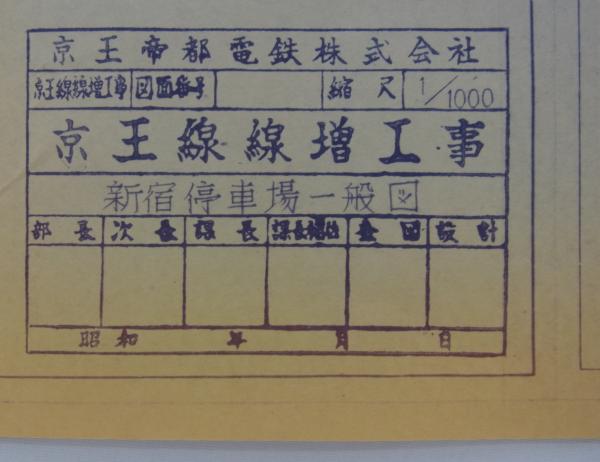 京王帝都電鉄株式会社
京王線線増工事 図面番号 縮尺 1/1000
京王線線増工事
新宿停車場一般図
部長 次長 課長 課長補佐 企図 設計
昭和 年 月 日